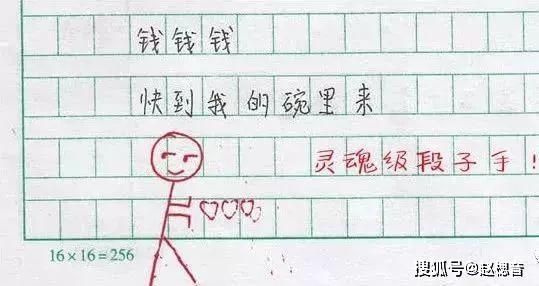 钱钱钱
快到我的碗里来
灵魂级段子手！
16×16=256
搜狐号@赵楒音